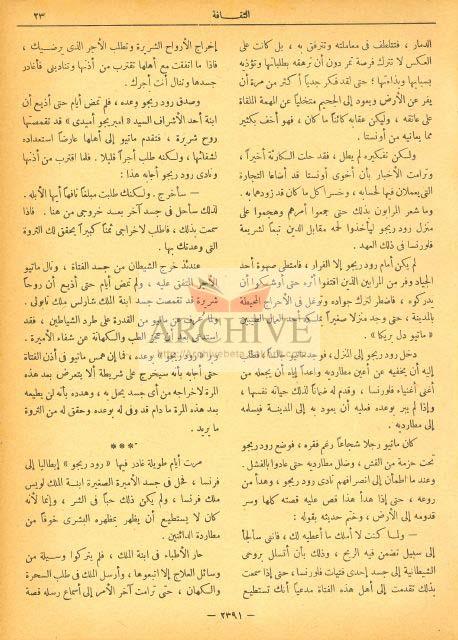 ٢٣
الثقافة
الدمار ، فتتلطف في معاملته وتترفق به ، بل كانت على
العكس لا تترك فرصة تمر دون أن ترهقه بطلباتها وتؤذيه
بسبابها وبذاءتها ؛ حتى لقد فكر جديا أكثر من مرة أن
يفر عن الأرض ويعود إلى الجحيم متخليا عن المهمة الملقاة
على عاتقه ، وليكن عقابه كائناً ما كان ، فهو أخف بكثير
مما يعانيه من أونستا .
ولكن تفكيره لم يطل ، فقد حلت الكارثة أخيراً ،
وترامت الأخبار بأن أخوى أونستا قد أضاعا التجارة
التي يعملان فيها لحسابه ، وخسرا كل ما كان قد زودهما به .
وما شعر المرابون بذلك حتى جموا أمرهم وهجموا على
منزل رود ريجو ليأخذوا لحمه مقابل الدين تبعا لشريعة
فلورنسا في ذلك العهد .
لم يكن أمام رود ريجو إلا الفرار ، فامتطى صهوة أحد
الجياد وفر من المرابين الذين اقتفوا أثره حتى أوشكوا أن
يدركوه ، فاضطر لترك جواده وتوغل في الأحراج المحيطة
بالمدينة ، حتى وجد منزلا صغيراً يملكه أحد العمال الطيبين
« ماتيو دل بريكا » .
دخل رود ريجو إلى المنزل ، فوجد ماتيو جالسا ، فطلب
إليه أن يخفيه عن أعين مطارديه واعداً إياه أن يجعله من
أغنى أغنياء فلورنسا ، وقدم له ضماناً لذلك حياته نفسها ،
وإذا لم يبر بوعده فعليه أن يعود به إلى المدينة فيسلمه
إلى مطارديه .
كان ماتيو رجلا شجاعاً رغم فقره ، فوضع رود ريجو
تحت حزمة من القش ، وضلل مطارديه حتى عادوا بالفشل .
وعند ما اطمأن إلى انصرافهم نادى رود ريجو ، وهدأ من
روعه ، حتى إذا هدأ هذا قص عليه قصته كلها وسر
قدومه إلى الأرض ، وختم حديثه بقوله :
— ولما كنت لا أملك ما أعطيه لك ، فانني سألجأ
إلى سبيل تضمن فيه الربح ، وذلك بأن أتسلل بروحى
الشيطانية إلى جسد إحدى فتيات فلورنسا ، حتى إذا سمعت
بذلك تقدمت إلى أهل هذه الفتاة مدعياً أنك تستطيع
إخراج الأرواح الشريرة وتطلب الأجر الذى يرضيك ،
فاذا ما اتفقت مع أهلها تقترب من أذنها وتنادينى فأغادر
جسدها وتنال أنت أجرك .
وصدق رود ريجو وعده ، فلم تمض أيام حتى أذيع أن
ابنة أحد الأشراف السيد « امبريجو أميدى » قد تقمصتها
روح شريرة ، فتقدم ماتيو إلى أهلها عارضاً استعداده
لشفائها ، ولكنه طلب أجراً قليلا . فلما اقترب من أذنها
ونادى رود ريجو أجابه هذا :
— سأخرج . ولكنك طلبت مبلغاً تافهاً أيها الأبله .
لذلك سأحل في جسد آخر بعد خروجى من هنا . فاذا
سمعت بذلك ، فاطلب لاخراجى ثمناً كبيراً يحقق لك الثروة
التي وعدتك بها .
عندئذ خرج الشيطان من جسد الفتاة ، ونال ماتيو
الأجر المتفق عليه ، ولم تمض أيام حتى أذيع أن روحاً
شريرة قد تقمصت جسد ابنة الملك شارلس ملك نابولى .
ولما عرف عن ماتيو من القدرة على طرد الشياطين ، فقد
الطب والكهانة عن شفاء الأميرة .
رود ريجو » بوعده ، فما إن همس ماتيو في أذن الفتاة
حتى أجابه بأنه سيخرج على شريطة ألا يتعرض بعد هذه
المرة لاخراجه من أى جسد يحل به ، وهدده بأنه لن يطيعه
بعد هذه المرة ما دام قد وفى له بوعده وحقق له من الثروة
ما يريد .
***
مرت أيام طويلة غادر فيها « رود ريجو » إيطاليا إلى
فرنسا ، فحل في جسد الأميرة الصغيرة ابنة الملك لويس
ملك فرنسا ، ولم يكن ذلك حباً في الشر ، وإنما لأنه
كان لا يستطيع أن يظهر بمظهره البشرى خوفاً من
مطاردة الدائنين .
حار الأطباء في ابنة الملك ، فلم يتركوا وسيلة من
وسائل العلاج إلا اتبعوها ، وأرسل الملك في طلب السحرة
والكهان ، حتى ترامت آخر الأمر إلى أسماع رسله قصة
— ٢٣٩١ —
ARCHIVE